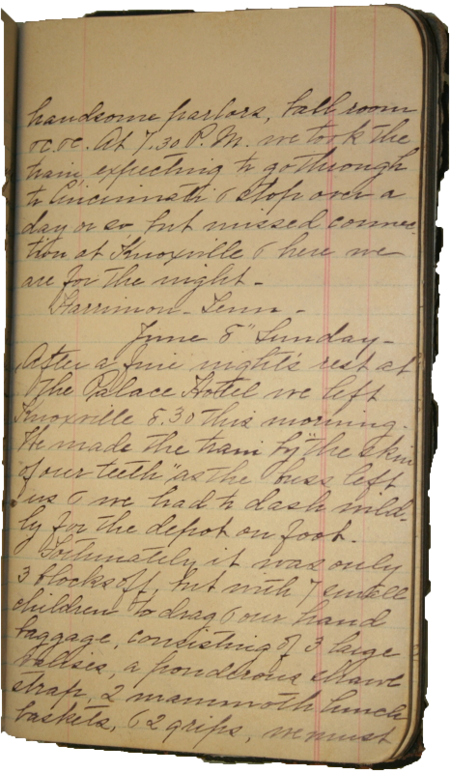 handsome parlors, ball room
&c. &c. At 7.30 P.M. we took the
train expecting to go through
to Cincinnati & stop over a
day or so, but missed connec-
tion at Knoxville & here we
are for the night -
Harrimon - Tenn -
June 8" Sunday -
After a fine night's rest at
The Palace Hotel we left
Knoxville 8.30 this morning.
We made the train by "the skin
of our teeth" as the buss left
us & we had to dash wild-
ly for the depot on foot.
Fortunately it was only
3 blocks off, but with 7 small
children to drag & our hand
baggage, consisting of 3 large
valises, a ponderous shawl
strap, 2 mammoth lunch
baskets, & 2 grips, we must